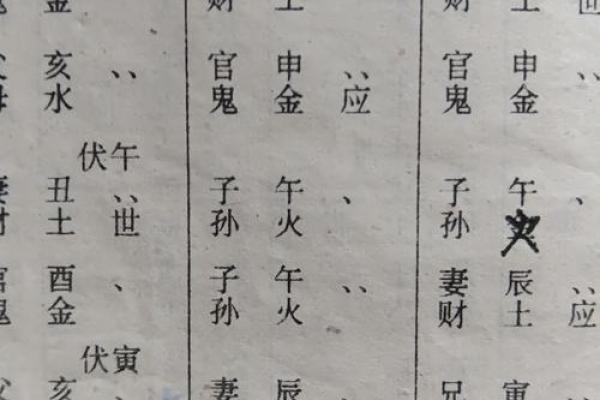 金 财 土 财 土 世
亥 、、 官 申 、、 官 申 、、
水 鬼 金 应 鬼 金
伏午
丑 、、 子 午 、 子 午 、
土 世 孙 火 孙
酉 、 子 午 、、 妻 辰 、、
金 孙 火 财 土 应
伏寅
亥 妻 辰 兄 寅